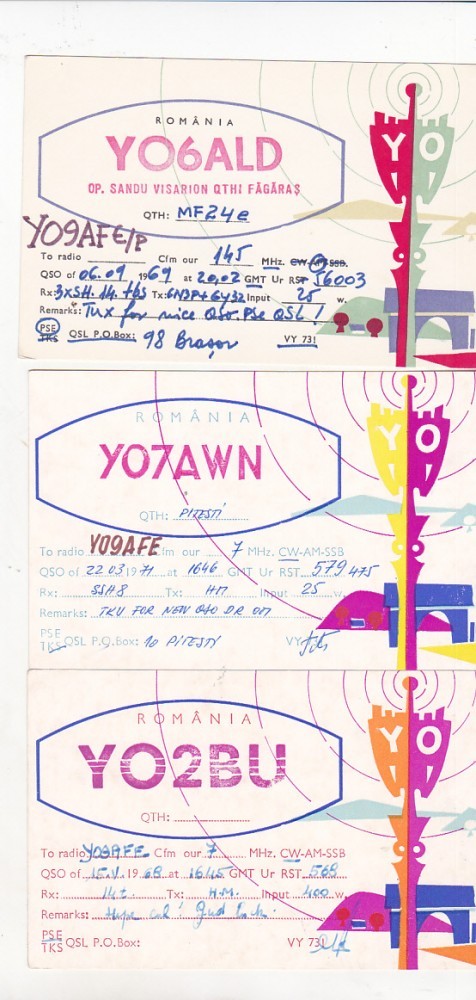 ROMÂNIA
YO6ALD
OP. SANDU VISARION QTHI FĂGĂRAȘ
QTH: MF24e
YO9AFE/P
To radio Cfm our 145 MHz. CW-AM-SSB.
QSO of 06.09 1969 at 20,02 GMT Ur RST 56003
Rx: 3xSH. 14 tbs Tx: 6N3P+GY32 Input 25 w.
Remarks: Tnx for nice QSO. Pse QSL!
PSE
TKS QSL P.O.Box: 98 Brașov VY 73!
YO
ROMÂNIA
YO7AWN
QTH: PITEȘTI
To radio YO9AFE Cfm our 7 MHz. CW-AM-SSB
QSO of 22 03 1971 at 1646 GMT Ur RST 579 475
Rx: SSH8 Tx: HM Input 25 w.
Remarks: TKU FOR NEW QSO DR OM
PSE
TKS QSL P.O.Box: 10 PITEȘTI VY
YO
ROMÂNIA
YO2BU
QTH:
To radio YO9AFE Cfm our 7 MHz. CW-AM-SSB
QSO of 15.V. 1968 at 1615 GMT Ur RST 569
Rx: 14 t. Tx: H.M. Input 400 w.
Remarks: Hpe cul! Gud luck.
PSE
TKS QSL P.O.Box: VY 73!
YO